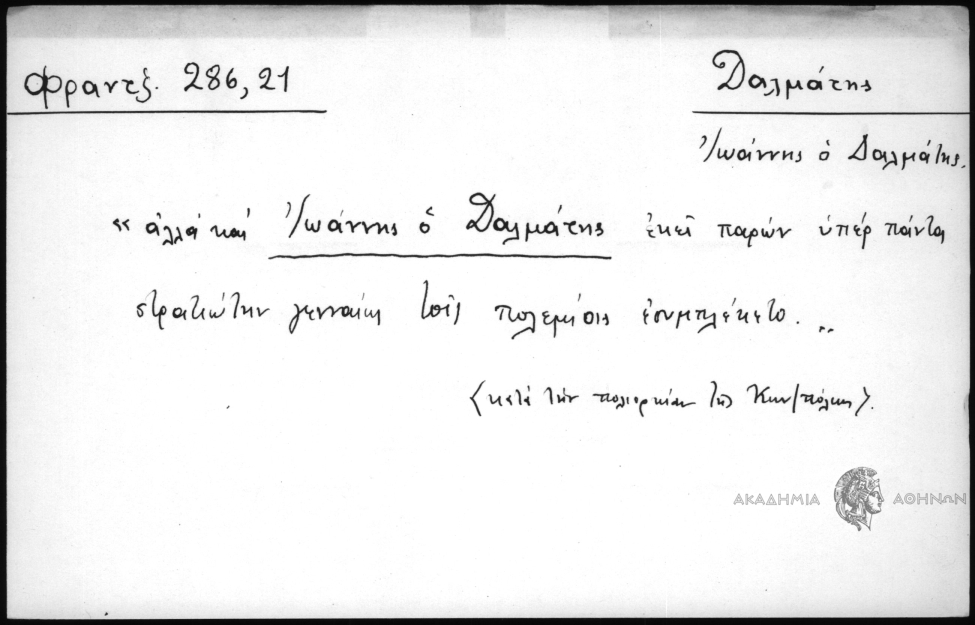 Φραντζ. 286,21
Δαλμάτης
Ἰωάννης ὁ Δαλμάτης.
« ἀλλὰ καὶ Ἰωάννης ὁ Δαλμάτης ἐκεῖ παρὼν ὑπὲρ πάντα
στρατιώτην γενναίως τοῖς πολεμίοις ἐσυμπλέκετο. ..
<κατὰ τὴν πολιορκίαν τῆς Κων/πόλεως>.
ΑΚΑΔΗΜΙΑ ΑΘΗΝΩΝ